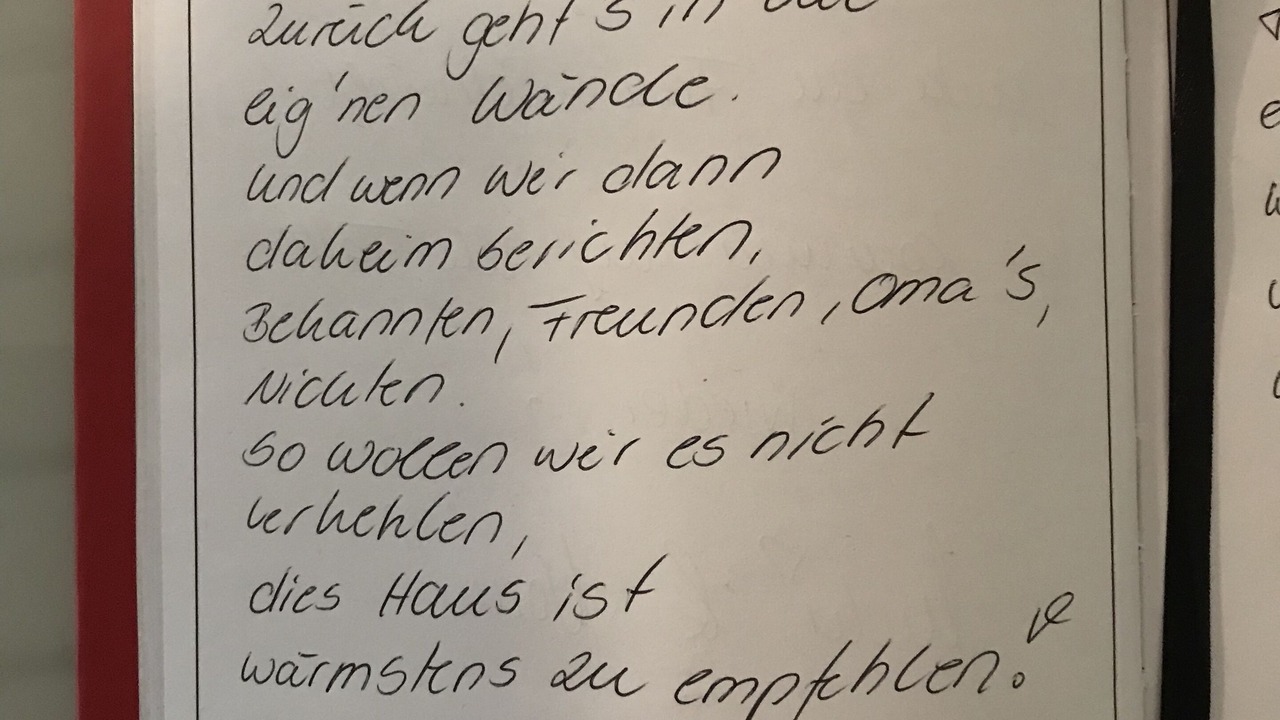 zurück geht's in die
eig'nen Wände.
Und wenn wir dann
daheim berichten,
Bekannten, Freunden, Oma's,
Nichten.
So wollen wir es nicht
verhehlen,
dies Haus ist
wärmstens zu empfehlen!